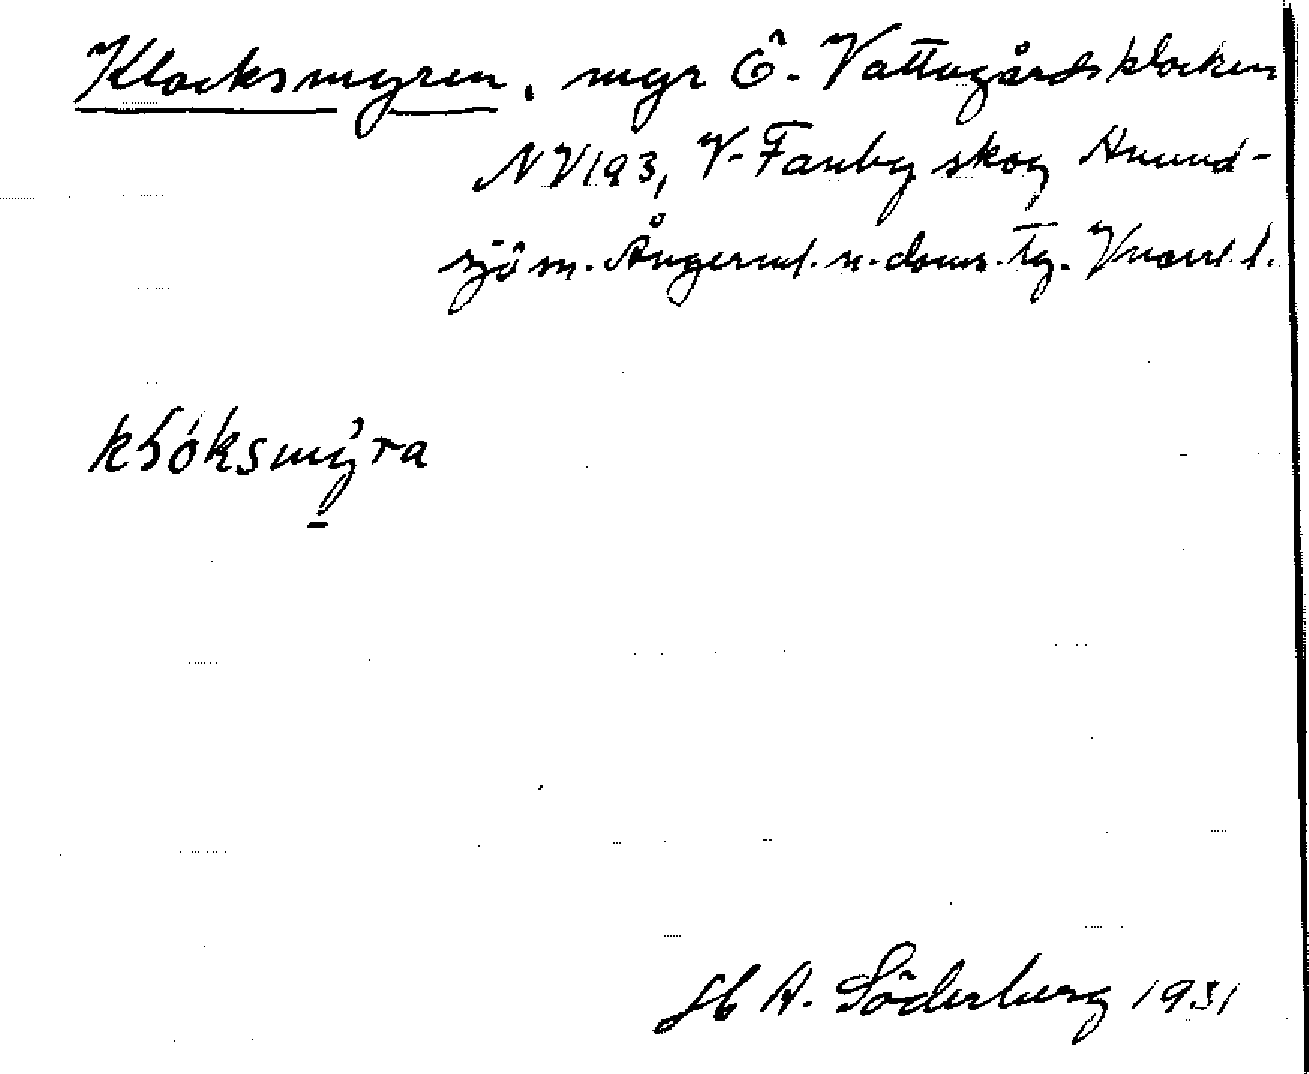 Klocksmyren, myr Ö. Vattugårdsklocken
NV193, V-Fanby skog Anund-
sjö sn. Ångerml. n. doms. tg. Vnorrl l.
kɽóksmýra
H A. Söderberg 1931